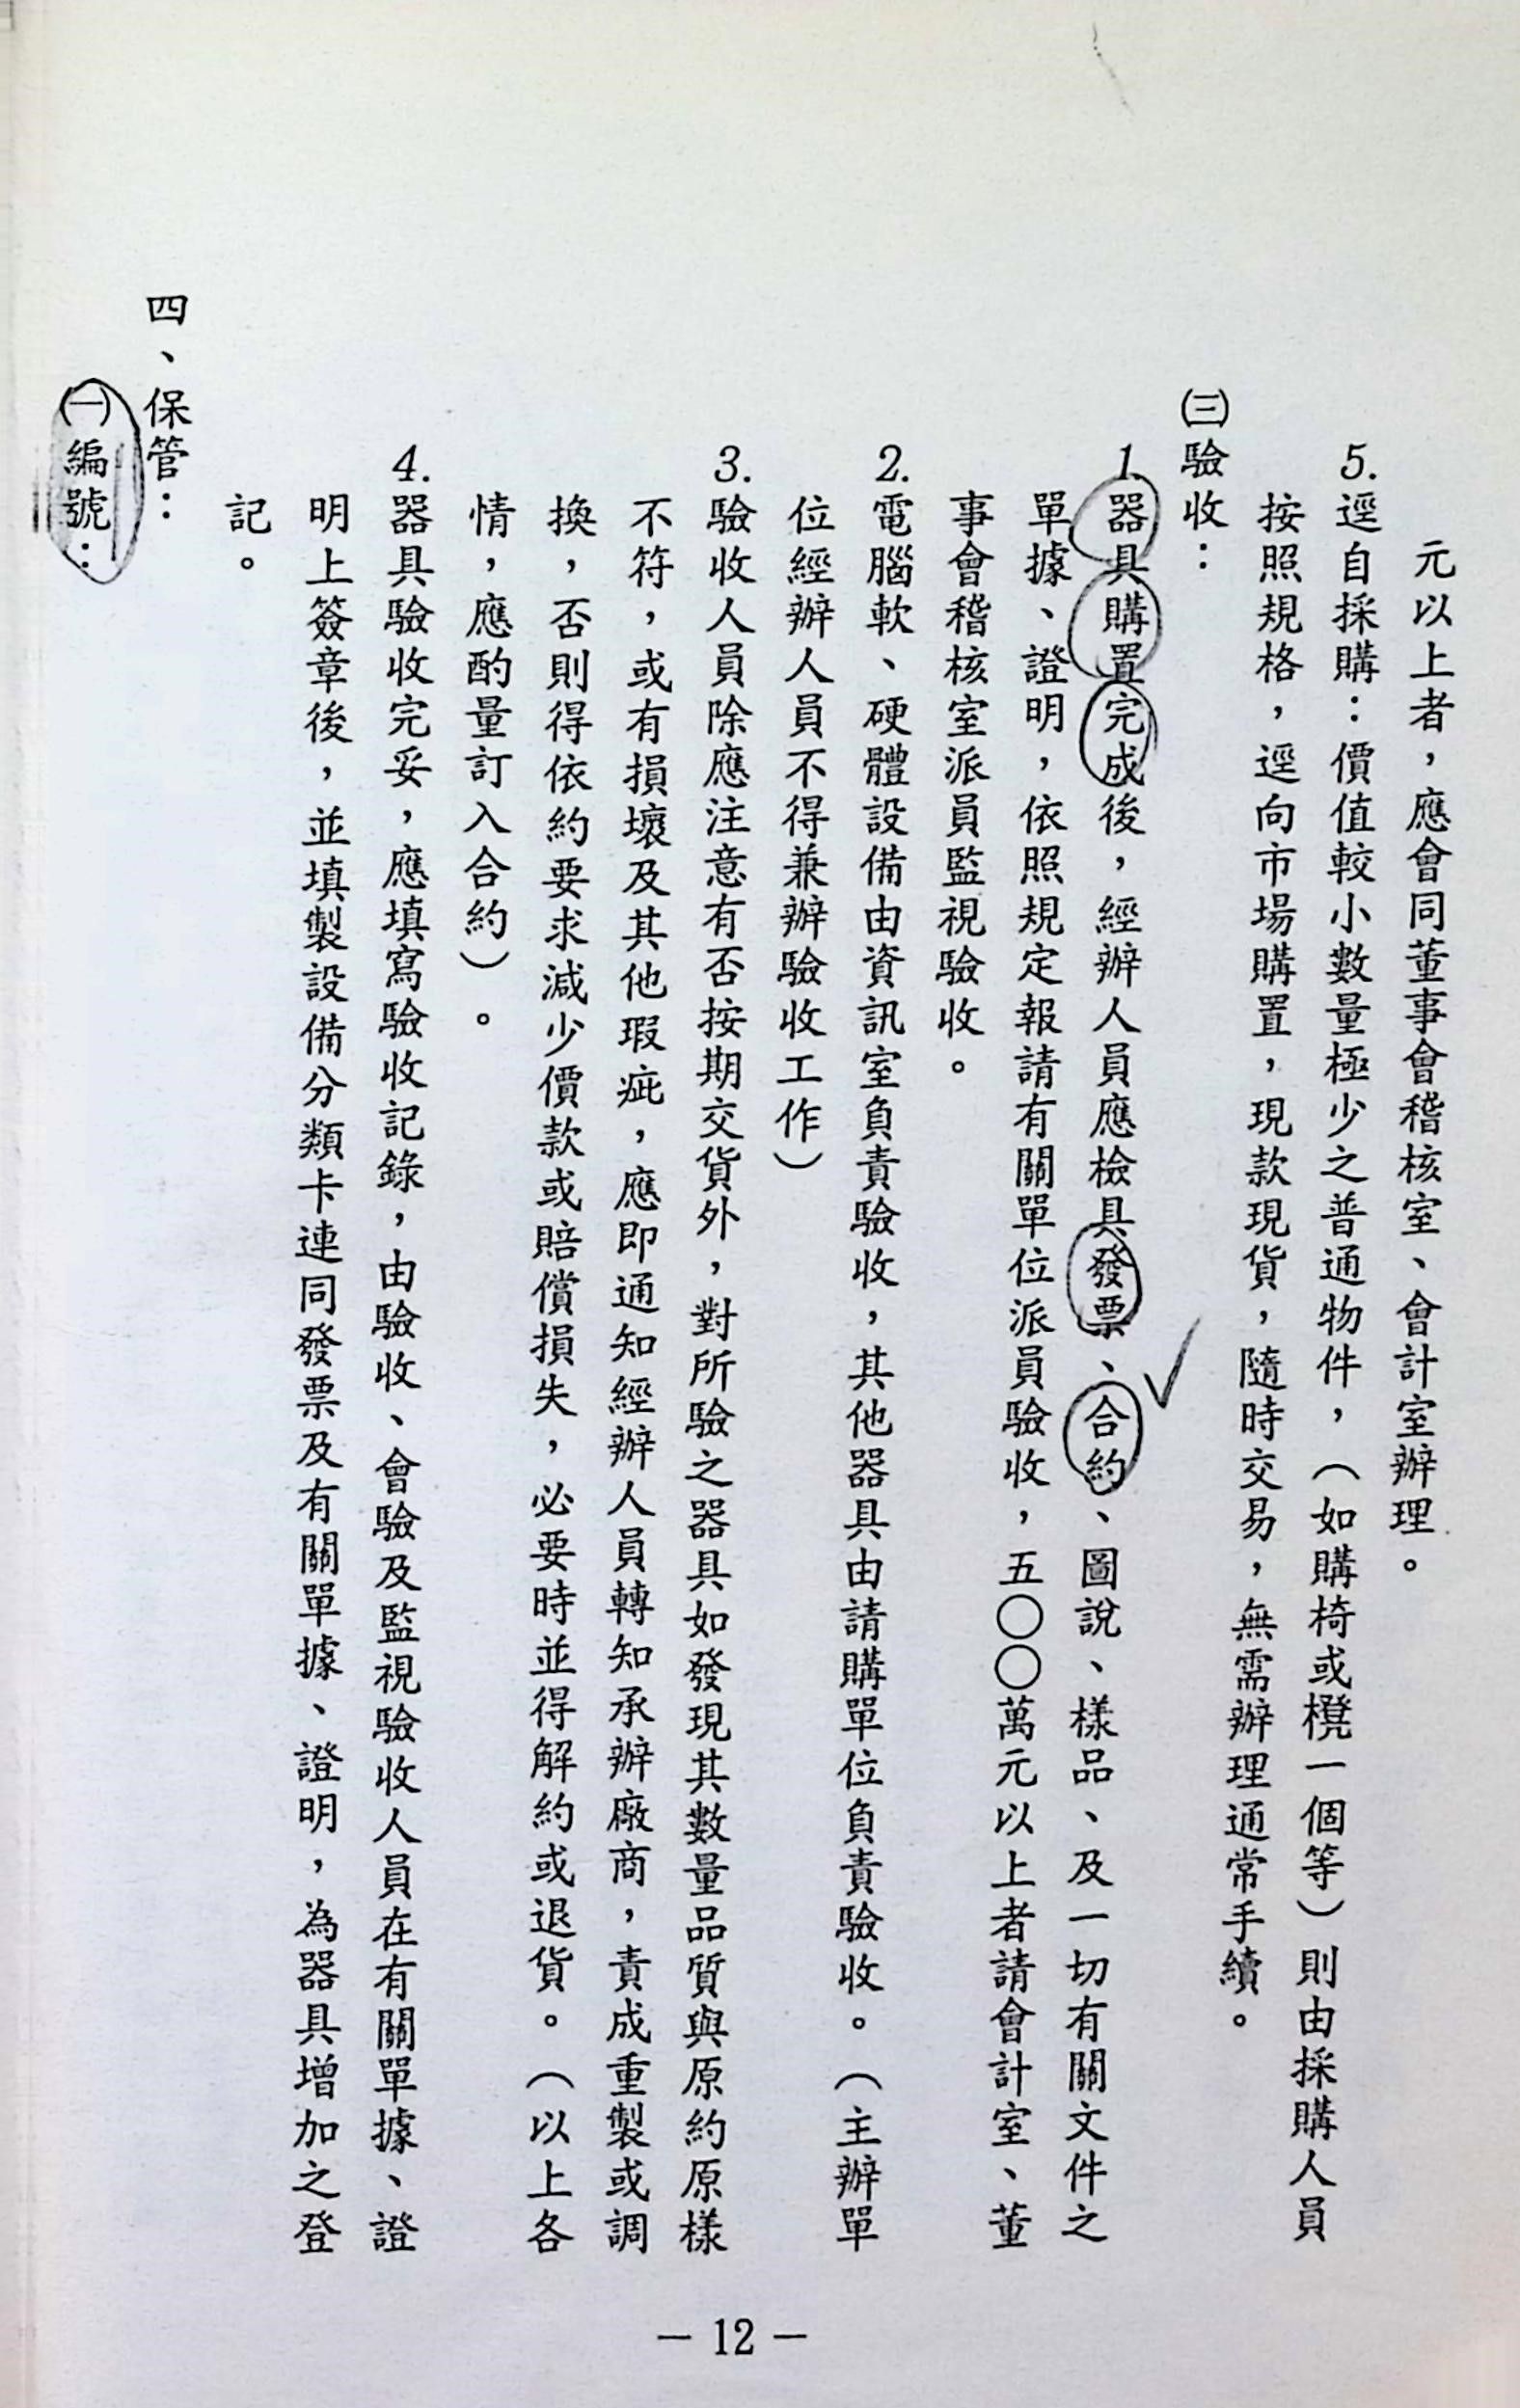 元以上者，應會同董事會稽核室、會計室辦理。
5.逕自採購：價值較小數量極少之普通物件，（如購椅或櫈一個等）則由採購人員
按照規格，逕向市場購置，現款現貨，隨時交易，無需辦理通常手續。
㈢驗收：
1.器具購置完成後，經辦人員應檢具發票、合約、圖說、樣品、及一切有關文件之
單據、證明，依照規定報請有關單位派員驗收，五〇〇萬元以上者請會計室、董
事會稽核室派員監視驗收。
2.電腦軟、硬體設備由資訊室負責驗收，其他器具由請購單位負責驗收。（主辦單
位經辦人員不得兼辦驗收工作）
3.驗收人員除應注意有否按期交貨外，對所驗之器具如發現其數量品質與原約原樣
不符，或有損壞及其他瑕疵，應即通知經辦人員轉知承辦廠商，責成重製或調
換，否則得依約要求減少價款或賠償損失，必要時並得解約或退貨。（以上各
情，應酌量訂入合約）。
4.器具驗收完妥，應填寫驗收記錄，由驗收、會驗及監視驗收人員在有關單據、證
明上簽章後，並填製設備分類卡連同發票及有關單據、證明，為器具增加之登
記。
四、保管：
㈠編號：
－12－